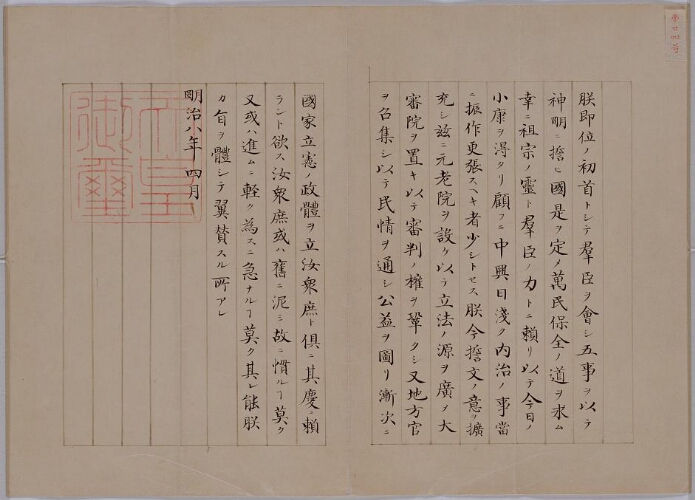 第廿四号
朕即位ノ初首トシテ羣臣ヲ會シ五事ヲ以テ
神明ニ誓ヒ國是ヲ定メ萬民保全ノ道ヲ求ム
幸ニ祖宗ノ靈ト羣臣ノ力トニ賴リ以テ今日ノ
小康ヲ得タリ顧フニ中興日淺ク内治ノ事當
ニ振作更張スヘキ者少シトセス朕今誓文ノ意ヲ擴
充シ茲ニ元老院ヲ設ケ以テ立法ノ源ヲ廣メ大
審院ヲ置キ以テ審判ノ權ヲ鞏クシ又地方官
ヲ召集シ以テ民情ヲ通シ公益ヲ圖リ漸次ニ
國家立憲ノ政體ヲ立汝衆庶ト俱ニ其慶ニ賴
ラント欲ス汝衆庶或ハ舊ニ泥ミ故ニ慣ルヿ莫ク
又或ハ進ムニ輕ク為スニ急ナルヿ莫ク其レ能朕
カ旨ヲ體シテ翼賛スル所アレ
明治八年四月
天皇
御璽